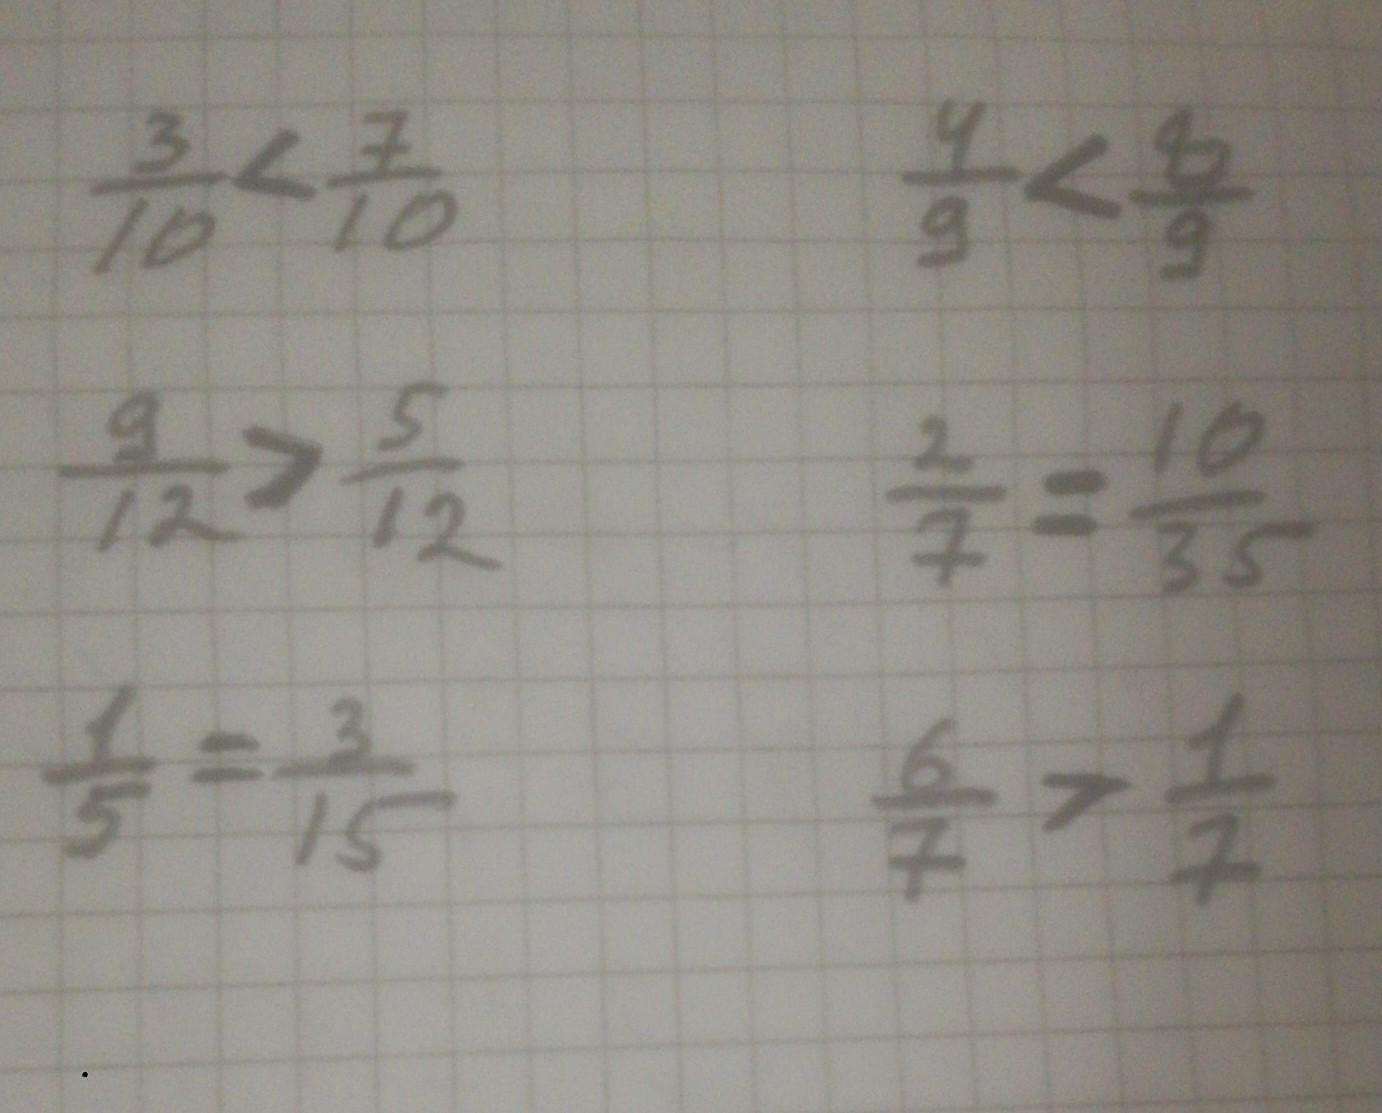 3/10 < 7/10    4/9 < 8/9
9/12 > 5/12    2/7 = 10/35
1/5 = 3/15    6/7 > 1/7